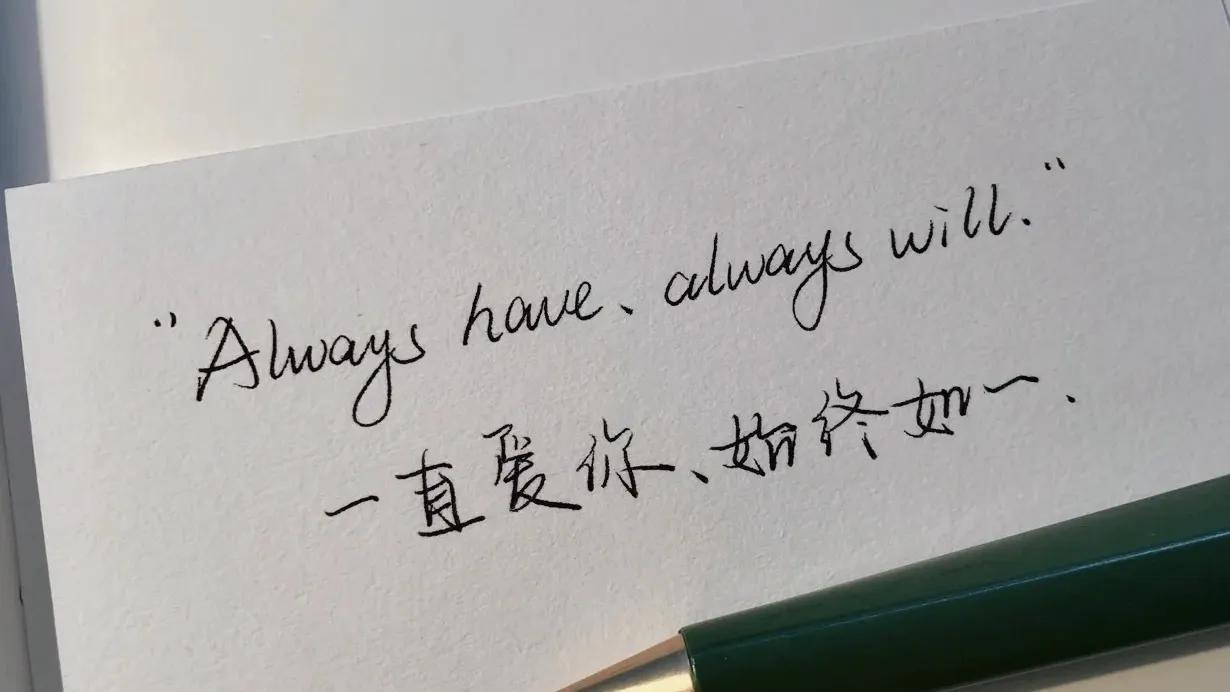 "Always have、always will."
一直爱你、始终如一.